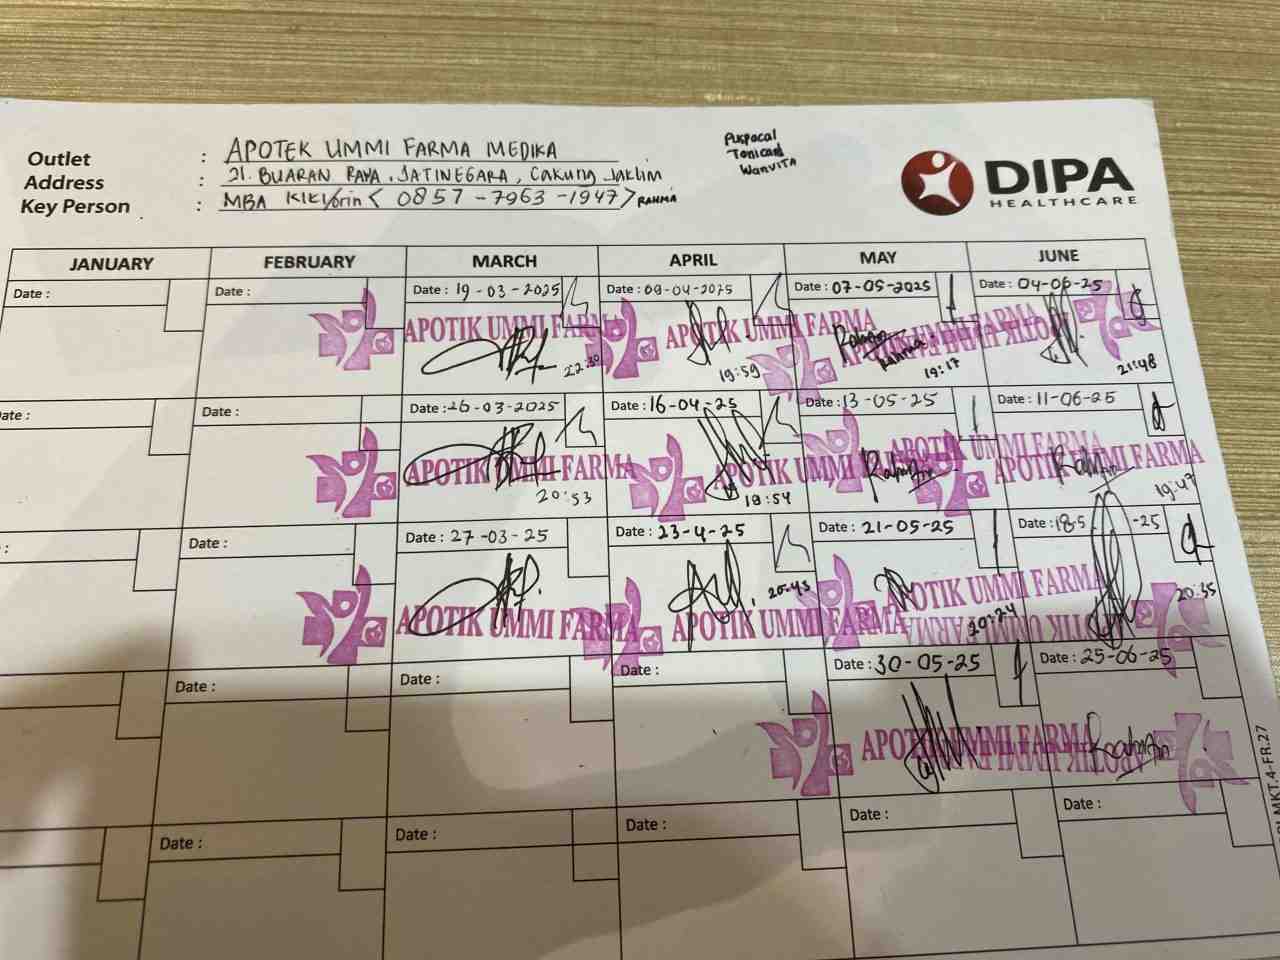 Outlet : APOTEK UMMI FARMA MEDIKA
Address : Jl. BUARAN RAYA, JATINEGARA, Cakung Jaktim
Key Person : MBA KIKI/orin < 0857-7963-1947> RAHMA
Tonicard
WanVITA
DIPA
HEALTHCARE
JANUARY FEBRUARY MARCH APRIL MAY JUNE
Date : Date : Date : 19-03-2025 Date : 09-04-2025 Date : 07-05-2025 Date : 04-06-25
APOTIK UMMI FARMA APOTIK UMMI FARMA UMMI FARMA APOTIK UMMI
Rahma
22:30 19:59 19:17 21:48
Date : Date : Date : 26-03-2025 Date : 16-04-25 Date : 13-05-25 Date : 11-06-25
APOTIK UMMI FARMA APOTIK UMMI APOTIK UMMI FARMA APOTIK UMMI FARMA
20:53 18:54 19:47
: Date : Date : 27-03-25 Date : 23-4-25 Date : 21-05-25 Date : 18-5 -25
APOTIK UMMI FARMA APOTIK UMMI FARMA APOTIK UMMI FARMA
20:43 20:24 20:35
Date : Date : Date : Date : 30-05-25 Date : 25-06-25
APOTIK UMMI FARMA
Date : Date : Date : Date : Date :
MKT.4-FR.27